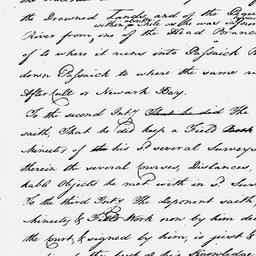 the Drowned Lands and of the
within a Mile as he was inform
River from one of the Head Branc
of to where it runs into Passaick
down Passaick to where the same
After Cull or Newark Bay.
To the second Inty That he did The
saith, That he did keep a Field Book
Minutes of the his sd several Surveys
therein the several Courses, Distances,
kable Objects he met with in sd Sur
To the third Inty The Deponent saith,
Minutes, & Field Work now by him de
the Court, & signed by him, is just &
the best of his Knowledge